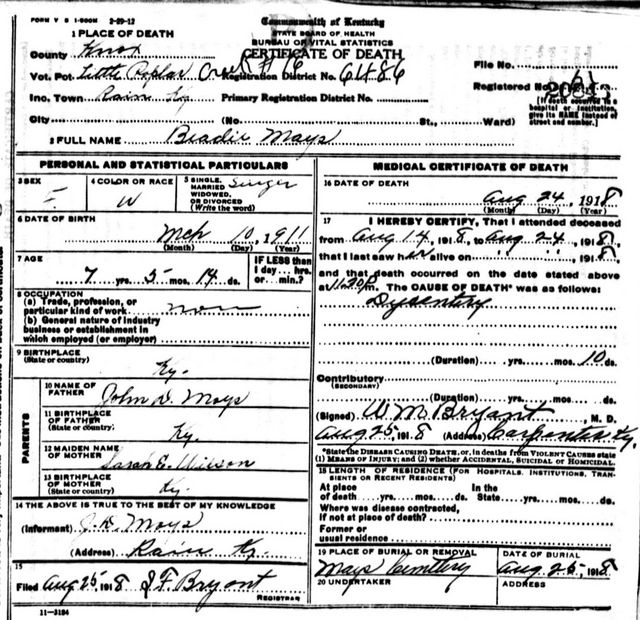 FORM V S 1-500M 2-29-12
Commonwealth of Kentucky
STATE BOARD OF HEALTH
BUREAU OF VITAL STATISTICS
CERTIFICATE OF DEATH
1 PLACE OF DEATH
County Knox
Vot. Pct. Little Poplar Creek
Inc. Town Rain Ky
City (No. St., Ward)
Registration District No. 6486
Primary Registration District No.
File No.
Registered No. 61
[If death occurred in a hospital or institution, give its NAME instead of street and number.]
2 FULL NAME Beadie Mays
PERSONAL AND STATISTICAL PARTICULARS
3 SEX F
4 COLOR OR RACE W
5 SINGLE, MARRIED WIDOWED, OR DIVORCED (Write the word)
6 DATE OF BIRTH Mch 10, 1911
(Month) (Day) (Year)
7 AGE 7 yrs. 5 mos. 14 ds.
IF LESS than 1 day... hrs. or... min.?
8 OCCUPATION
(a) Trade, profession, or particular kind of work
(b) General nature of industry business or establishment in which employed (or employer)
9 BIRTHPLACE (State or country) Ky.
PARENTS
10 NAME OF FATHER John D. Mays
11 BIRTHPLACE OF FATHER (State or country) Ky.
12 MAIDEN NAME OF MOTHER Sarah E. Wilson
13 BIRTHPLACE OF MOTHER (State or country) Ky.
14 THE ABOVE IS TRUE TO THE BEST OF MY KNOWLEDGE
(Informant) J. D. Mays
(Address) Rain Ky.
15
Filed Aug 25, 1918 J F Bryant
REGISTRAR
11-3184
MEDICAL CERTIFICATE OF DEATH
16 DATE OF DEATH
Aug 24, 1918
(Month) (Day) (Year)
17 I HEREBY CERTIFY, That I attended deceased
from Aug 14, 1918, to Aug 24, 1918,
that I last saw her alive on " ", 1918,
and that death occurred on the date stated above
at 11:30 P.m. The CAUSE OF DEATH* was as follows:
Dysentery
(Duration) yrs. mos. 10 ds.
Contributory
(SECONDARY)
(Duration) yrs. mos. ds.
(Signed) W M Bryant, M. D.
Aug 25, 1918 (Address) Carpenter Ky.
*State the DISEASE CAUSING DEATH, or, in deaths from VIOLENT CAUSES state (1) MEANS OF INJURY; and (2) whether ACCIDENTAL, SUICIDAL or HOMICIDAL.
18 LENGTH OF RESIDENCE (FOR HOSPITALS, INSTITUTIONS, TRANSIENTS OR RECENT RESIDENTS)
At place of death yrs. mos. ds. In the State yrs. mos. ds.
Where was disease contracted, if not at place of death?
Former or usual residence
19 PLACE OF BURIAL OR REMOVAL
Mays Cemetery
DATE OF BURIAL
Aug 25, 1918
20 UNDERTAKER
ADDRESS